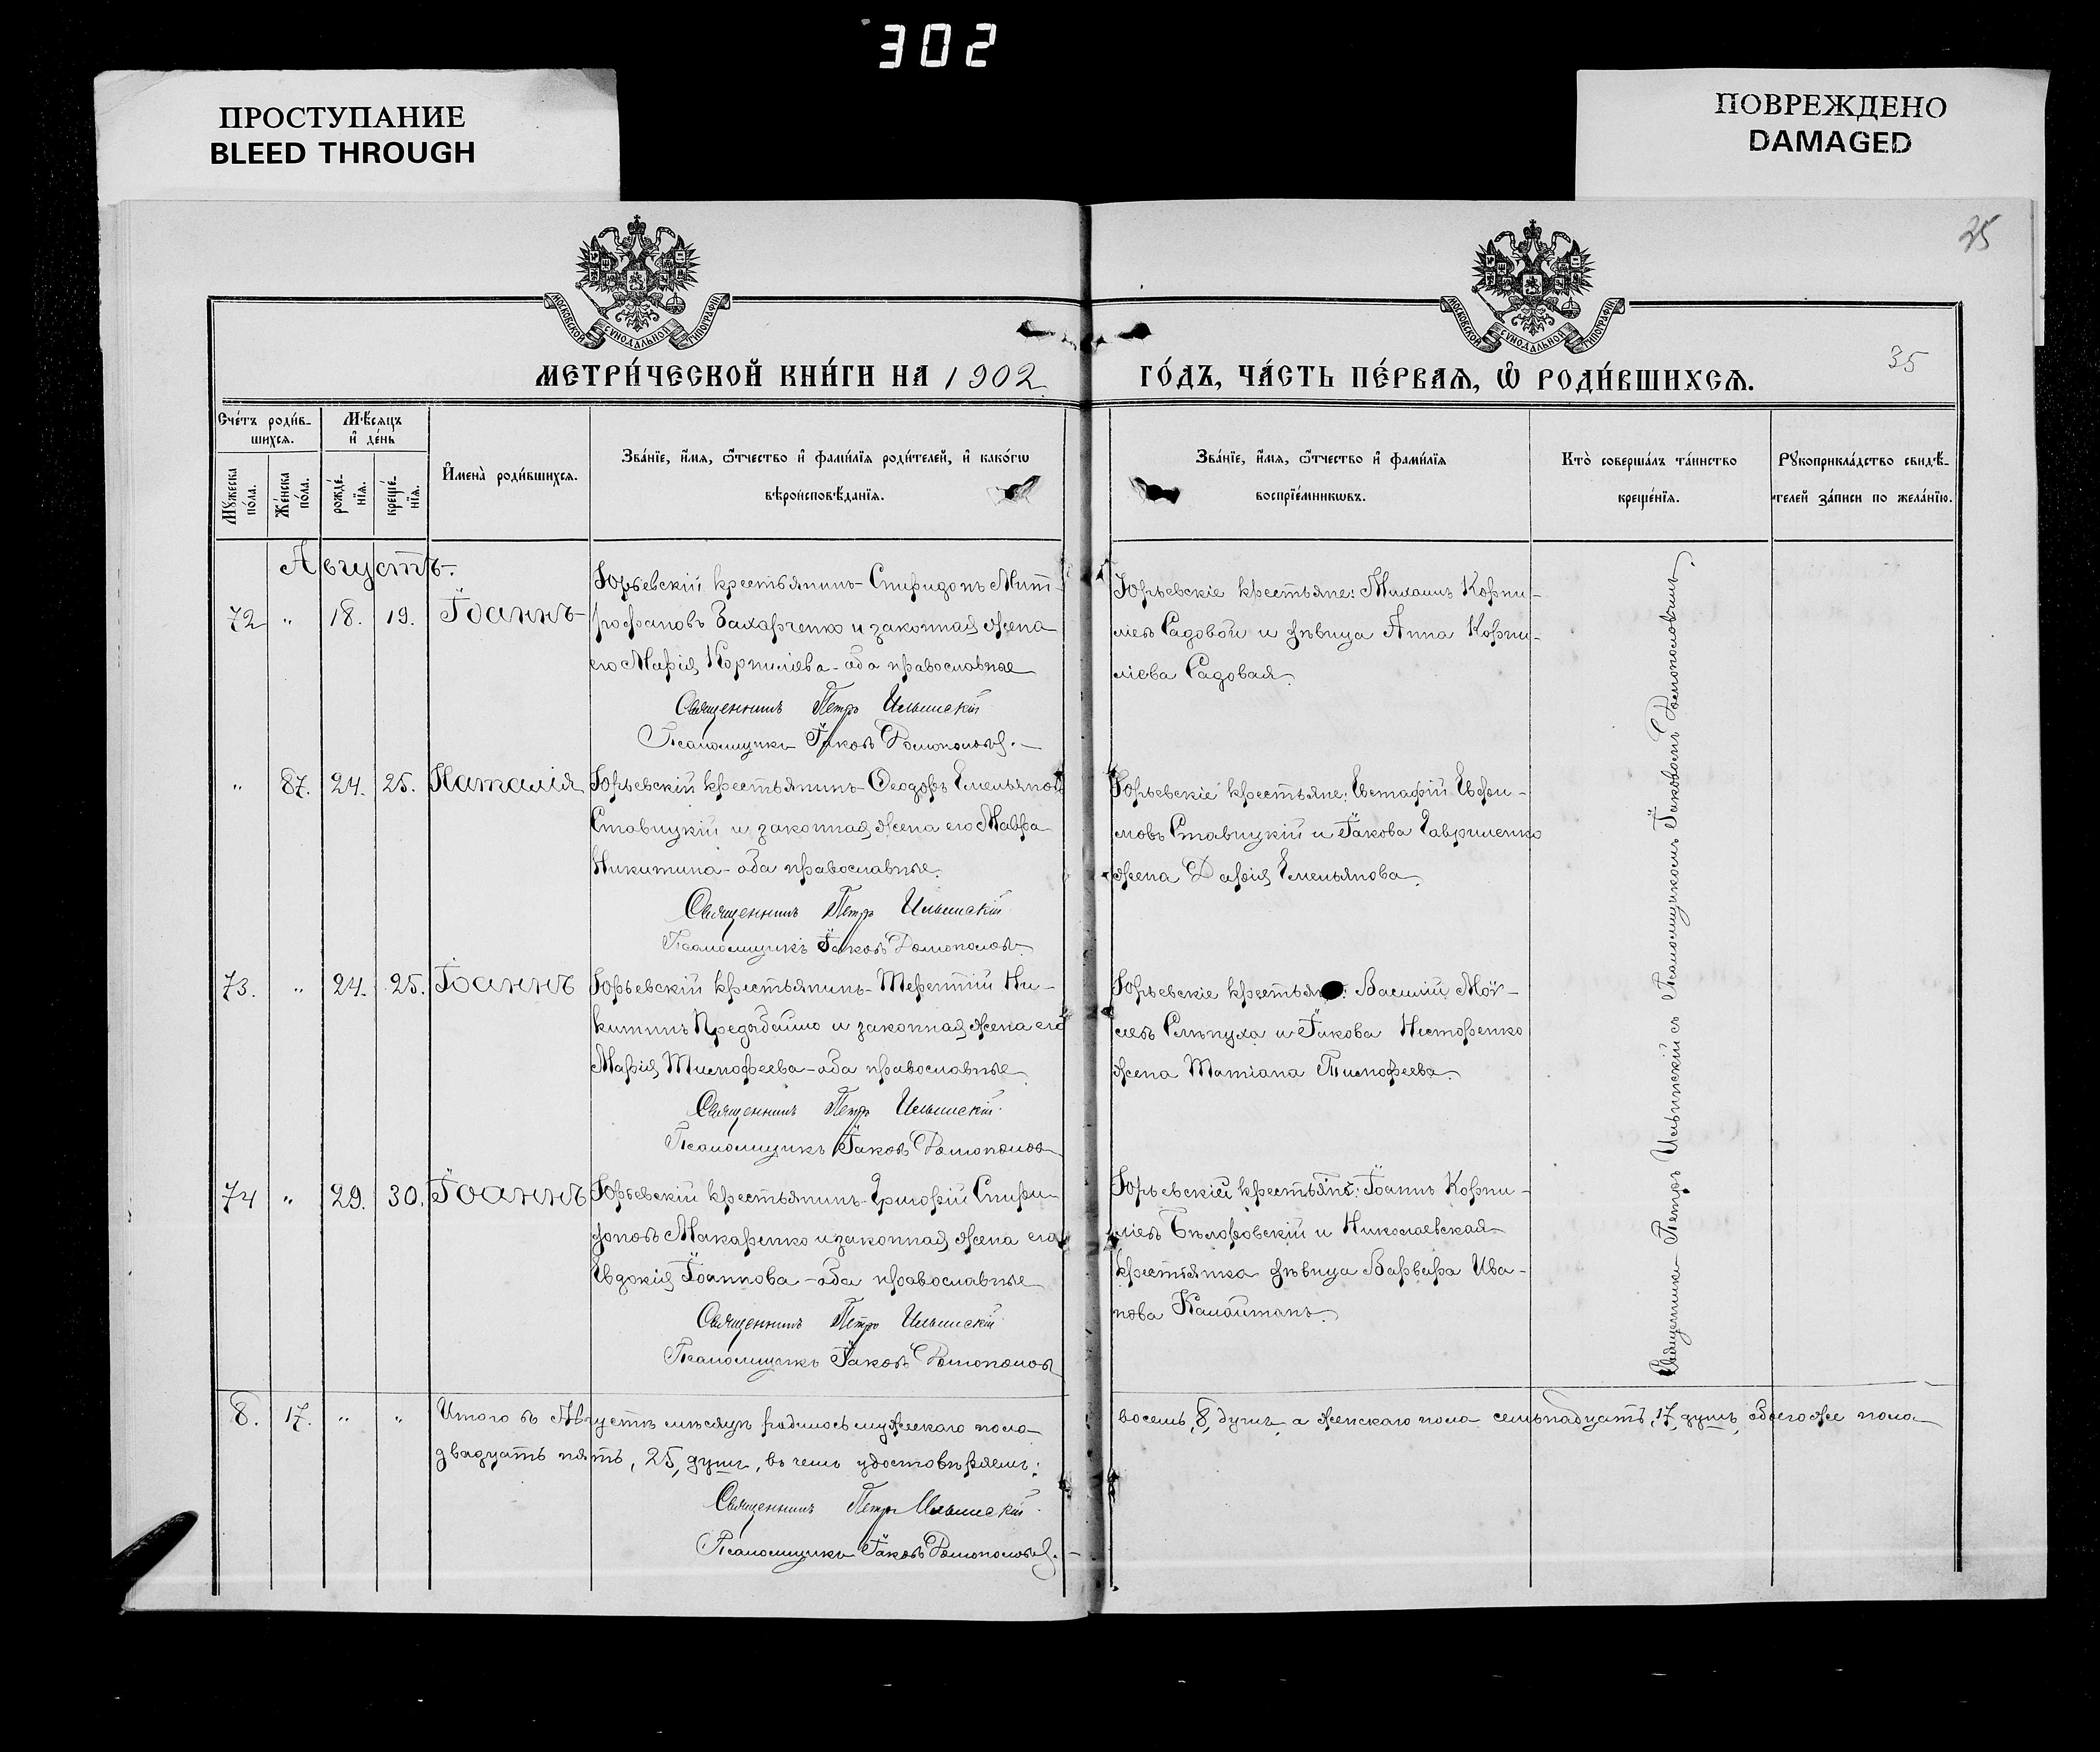 302
ПРОСТУПАНИЕ
BLEED THROUGH
ПОВРЕЖДЕНО
DAMAGED
25
МОСКОВСКОЙ СУНОДАЛЬНОЙ ТИПОГРАФІИ
МОСКОВСКОЙ СУНОДАЛЬНОЙ ТИПОГРАФІИ
МЕТРИ́ЧЕСКОЙ КНИ́ГИ НА 1902 ГО́ДЪ, ЧА́СТЬ ПЕ́РВАѦ, Ѽ РОДИ́ВШИХСѦ.
35
Сче́тъ роди́в-
шихсѧ.
Мѣ́сѧцъ
и҆ де́нь
Мꙋ́жеска по́ла.
Же́нска по́ла.
рожде́-
нїѧ.
креще́-
нїѧ.
И҆мена̀ роди́вшихсѧ.
Зва́нїе, и҆́мѧ, ѻ҆́тчество и҆ фами́лїѧ роди́телей, и҆ како́гѡ
вѣроисповѣ́данїѧ.
Зва́нїе, и҆́мѧ, ѻ҆́тчество и҆ фами́лїѧ
воспрїе́мникѡвъ.
Кто̀ соверша́лъ та́инство
креще́нїѧ.
Рꙋкоприкла́дство свидѣ́-
телей за́писи по жела́нїю.
Августъ.
72 " 18. 19. Іоаннъ
Юрьевскій крестьянинъ Спиридонъ Мит-
рофановъ Захарченко и законная жена
его Марія Корниліева - оба православные
Священникъ Петръ Ильинскій
Псаломщикъ Іаковъ
Юрьевскіе крестьяне: Михаилъ Корни-
ліевъ Садовой и дѣвица Анна Корни-
ліева Садовая.
" 87. 24. 25. Наталія
Юрьевскій крестьянинъ Ѳеодоръ Емельяновъ
Ставицкій и законная жена его Мавра
Никитина - оба православные.
Священникъ Петръ Ильинскій
Псаломщикъ Іаковъ
Юрьевскіе крестьяне: Евстафій Ефри-
мовъ Ставицкій и Іакова Гавриленко
жена Дарія Емельянова.
73. " 24. 25. Іоаннъ
Юрьевскій крестьянинъ Терентій Ни-
китинъ и законная жена его
Марія Тимофеева - оба православные
Священникъ Петръ Ильинскій
Псаломщикъ Іаковъ
Юрьевскіе крестьяне: Василій Мої-
сеевъ Слѣпуха и Іакова Несторенко
жена Татіана Тимофеева.
74 " 29. 30. Іоаннъ
Юрьевскій крестьянинъ Григорій Спири-
доновъ Макаренко и законная жена его
Евдокія Іоаннова - оба православные
Священникъ Петръ Ильинскій
Псаломщикъ Іаковъ
Юрьевскій крестьянинъ: Іоаннъ Корни-
ліевъ и Николаевская
крестьянка дѣвица Варвара Ива-
нова
Священникъ Петръ Ильинскій съ Псаломщикомъ Іаковомъ
8. 17. " " Итого въ Августѣ мѣсяцѣ родилось мужескаго пола восемь, 8, душъ, а женскаго пола семьнадцать, 17, душъ, обоего же пола
двадцать пять, 25, душъ, въ чемъ удостовѣряемъ:
Священникъ Петръ Ильинскій
Псаломщикъ Іаковъ